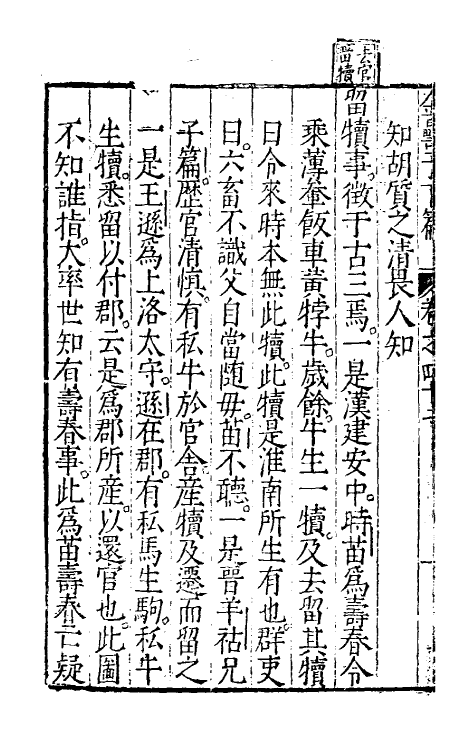 知胡質之清畏人知
去官
留犢
留犢事。徵于古三焉。一是漢建安中。時苗爲壽春令
乘薄軬飯車黃牸牛。歲餘。牛生一犢。及去留其犢
曰令來時本無此犢。此犢是淮南所生有也。群吏
曰。六畜不識父自當隨毋。苗不聽。一是晉羊祜兄
子篇。歷官清慎。有私牛於官舍。産犢及遷。而留之
一是王遜爲上洛太守。遜在郡。有私馬生駒。私牛
生犢。悉留以付郡。云是爲郡所産。以還官也。此圖
不知誰指。大率世知有壽春事。此爲苗壽春亡疑